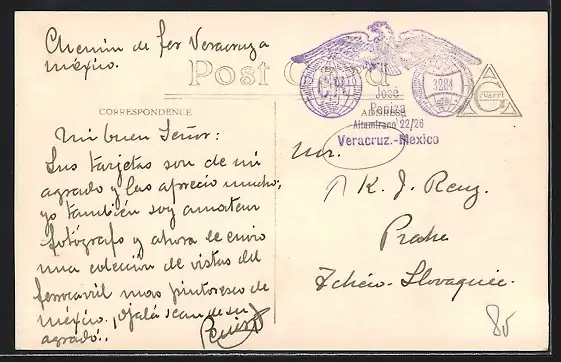 Chemin de fer Veracruz a
méxico.
Post Card
CORRESPONDENCE
ADDRESS
3204
José
Peniza
Altamirano 22/26
Veracruz.-Mexico
Mi buen Señor:
Sus tarjetas son de mi
agrado y las aprecio mucho;
yo también soy amateur
fotógrafo y ahora le envio
una coleccion de vistas del
ferrocarril mas pintoresco de
méxico. ¡Ojalá sean de su
agrado..
Mr.
K. J.
Praha
Tchéco-Slovaquie.
80